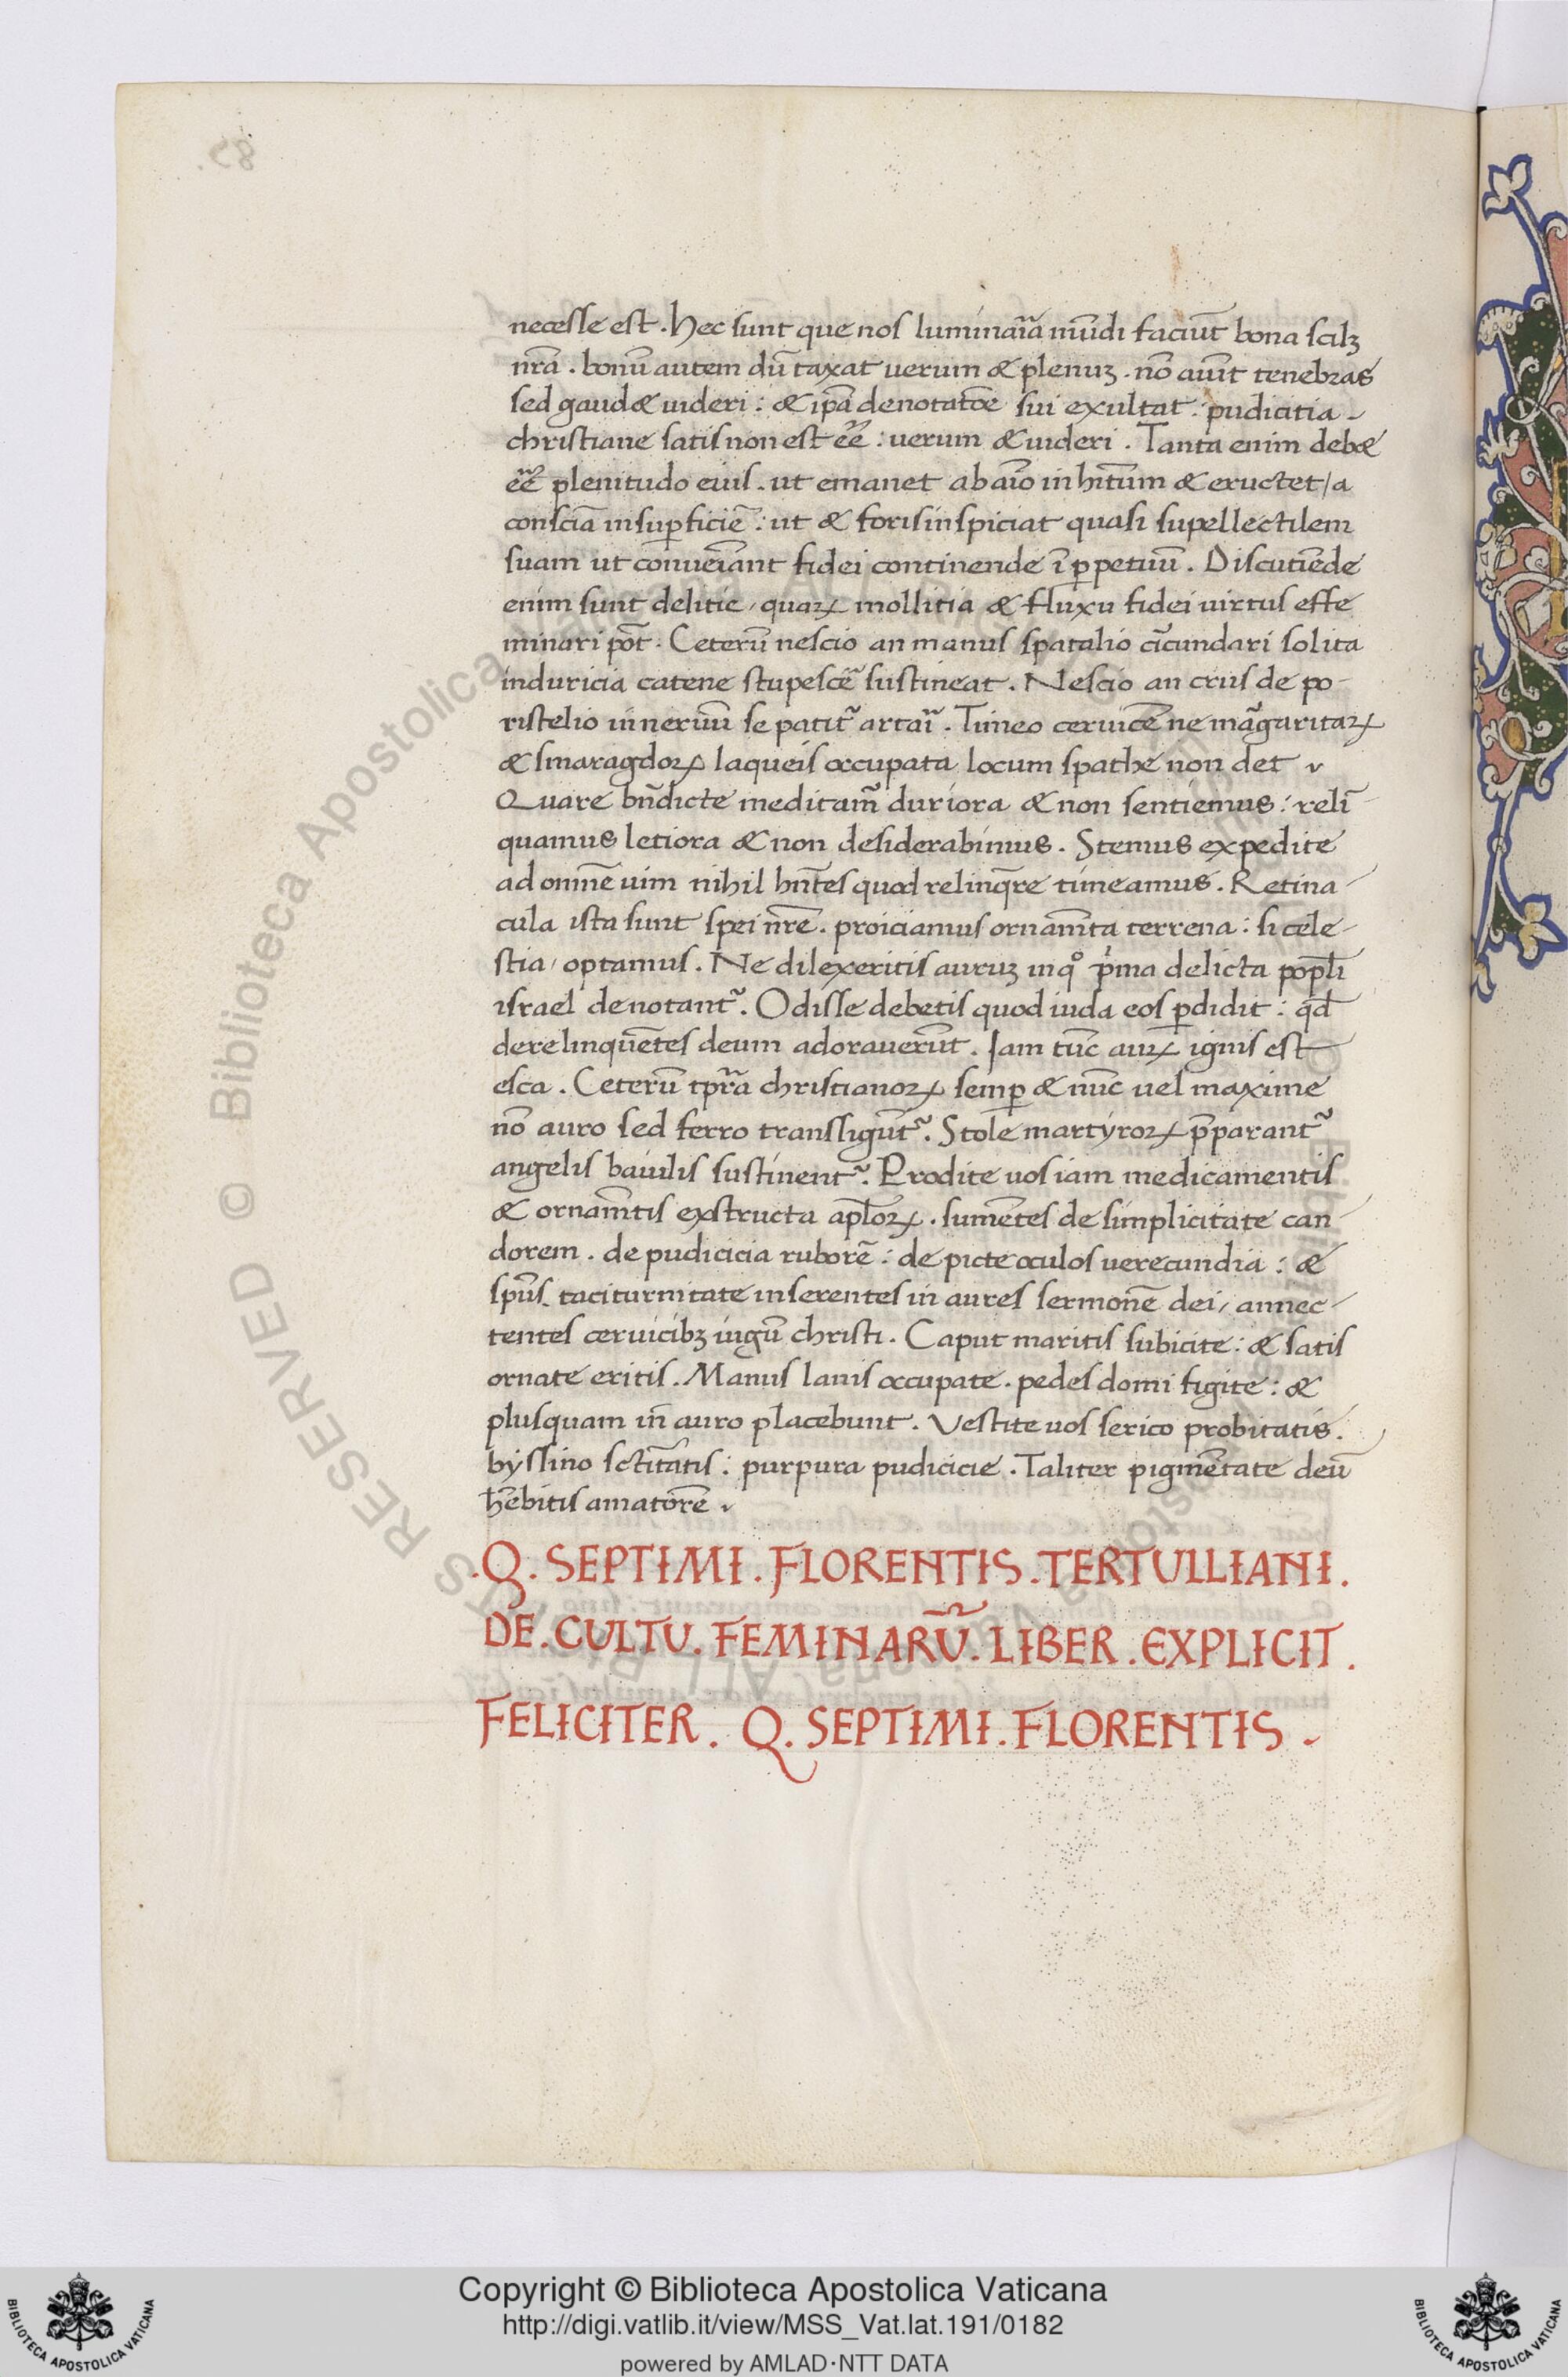 necesse est. Hec sunt que nos luminaīa mūdi faciūt bona scilꝫ
nrā. bonū autem dūtaxat uerum & plenuꝫ. nō auūt tenebras
sed gaud& uideri: & ipā denotatōe sui exultat: pudicitia
christiane satis non est eē: uerum & uideri. Tanta enim deb&
eē plenitudo eius. ut emanet ab aīo in hītum & eructet/a
consciā in suꝑficiē: ut & foris inspiciat quasi supellectilem
suam ut conueiānt fidei continende ī ꝑpetuū. Discutiēde
enim sunt delitie, quaꝝ mollitia & fluxu fidei uirtus effe
minari pōt. Ceterū nescio an manus spatalio cīcundari solita
in duricia catene stupescē sustineat. Nescio an crus de po-
ristelio in neruū se patit᷑ artaī. Timeo ceruicē ne māgaritaꝝ
& smaragdoꝝ laqueis occupata locum spathe non det
Quare bn̄dicte meditam̄ duriora & non sentiemus: relī-
quamus letiora & non desiderabimus. Stemus expedite
ad omnē uim nihil hn̄tes quod relinq̄re timeamus. Retina-
cula ista sunt spei nrē. proiciamus ornam̄ta terrena: si cele-
stia, optamus. Ne dilexeritis auruꝫ in qº pͥma delicta popli
israel denotant᷑. Odisse debetis quod iuda eos ꝑdidit: qd̄
derelinquētes deum adorauerūt. Jam tūc auꝝ ignis est
esca. Ceterū tp̄ra christianoꝝ semꝑ & nūc uel maxime
nō auro sed ferro transsigūt᷑. Stole martyroꝝ p̄parant᷑
angelis baiulis sustinent᷑. Prodite uos iam medicamentis
& ornam̄tis exstructa aplōꝝ. sumētes de simplicitate can-
dorem. de pudicicia ruborē: de picte oculos uerecundia: &
spūs taciturnitate inserentes in aures sermonē dei, annec-
tentes ceruicibꝫ iugū christi. Caput maritis subicite: & satis
ornate eritis. Manus lanis occupate. pedes domi figite: &
plusquam in auro placebunt. Vestite uos serico probitatis.
byssino sctītatis: purpura pudicicie. Taliter pigmētate deū
hēbitis amatorē
.Q. SEPTIMI. FLORENTIS. TERTULLIANI.
DE. CULTU. FEMINARŪ. LIBER. EXPLICIT.
FELICITER. Q. SEPTIMI. FLORENTIS.
85.
© Biblioteca Apostolica Vaticana ALL RIGHTS RESERVED
Copyright © Biblioteca Apostolica Vaticana
http://digi.vatlib.it/view/MSS_Vat.lat.191/0182
powered by AMLAD·NTT DATA
BIBLIOTECA APOSTOLICA VATICANA
BIBLIOTECA APOSTOLICA VATICANA